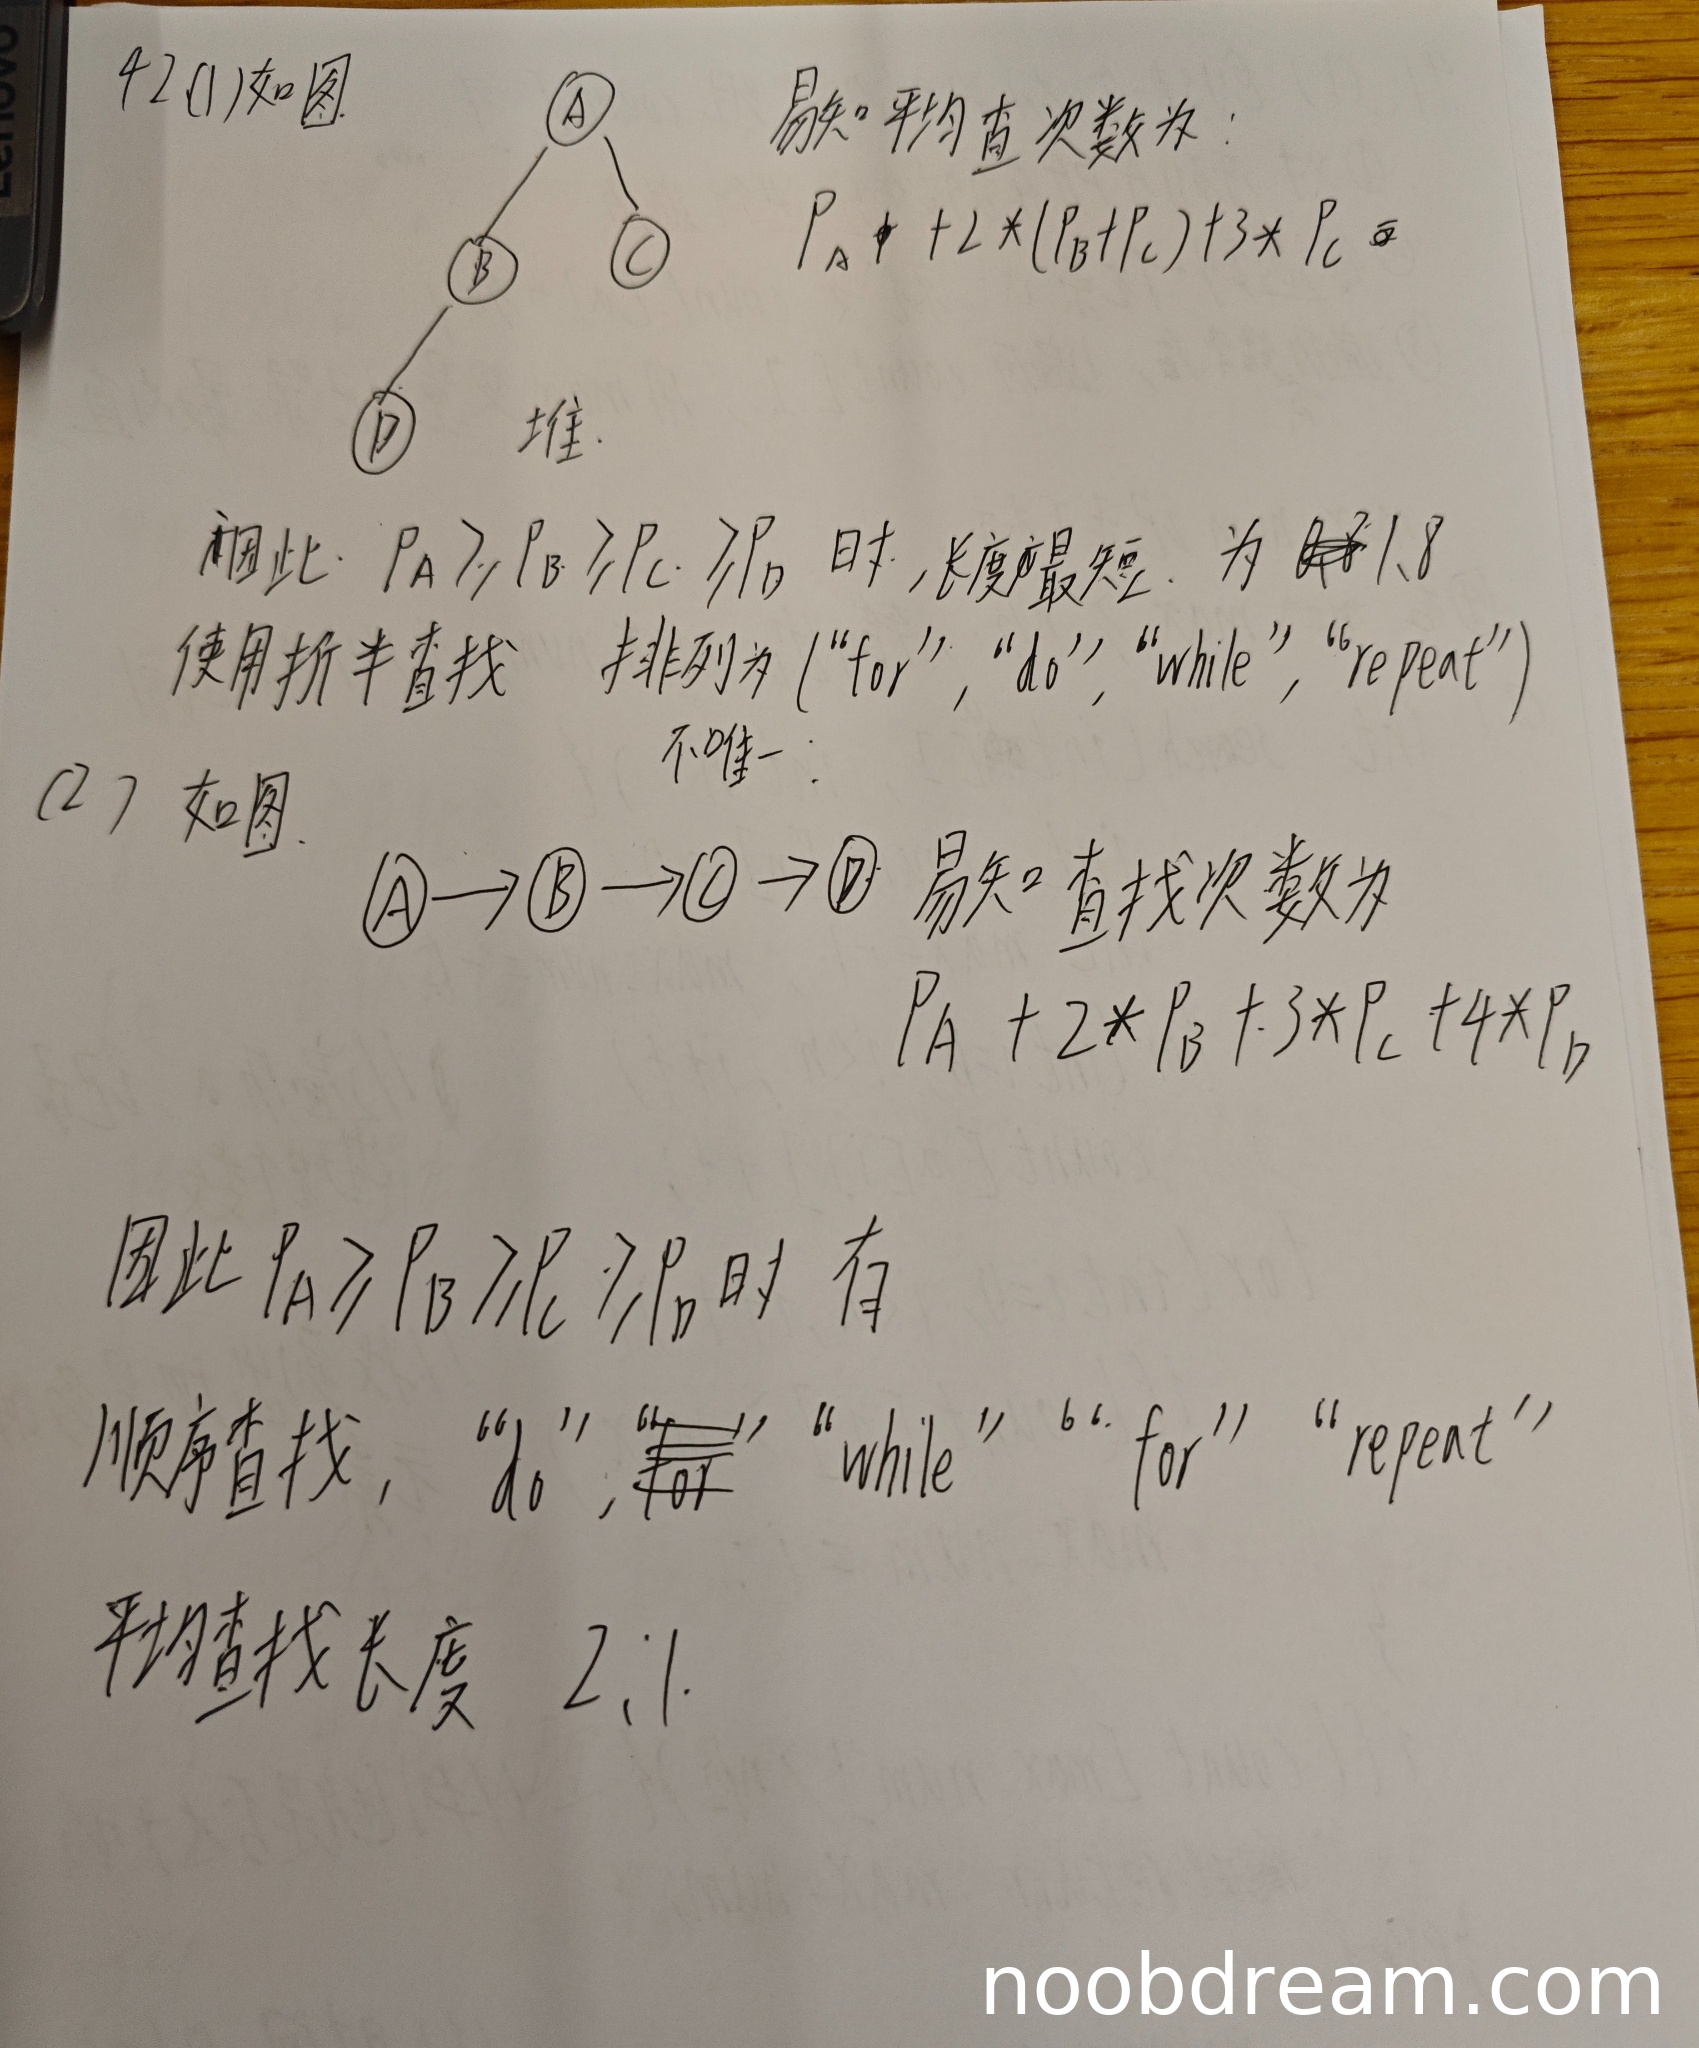 42(1)如图.
A
B
C
D
堆.
易知平均查次数为:
PA + 2*(PB+PC)+3* PC =
因此. PA ≥ PB ≥ PC. ≥ PD 时, 长度最短. 为 1.8
使用折半查找 排列为 (“for”, “do”, “while”, “repeat”)
不唯一:
(2) 如图.
A → B → C → D 易知查找次数为
PA + 2*PB + 3*PC + 4*PD
因此 PA ≥ PB ≥ PC ≥ PD 时 有
顺序查找, “do”, “for” “while” “for” “repeat”
平均查找长度 2.1.
Lenovo
noobdream.com